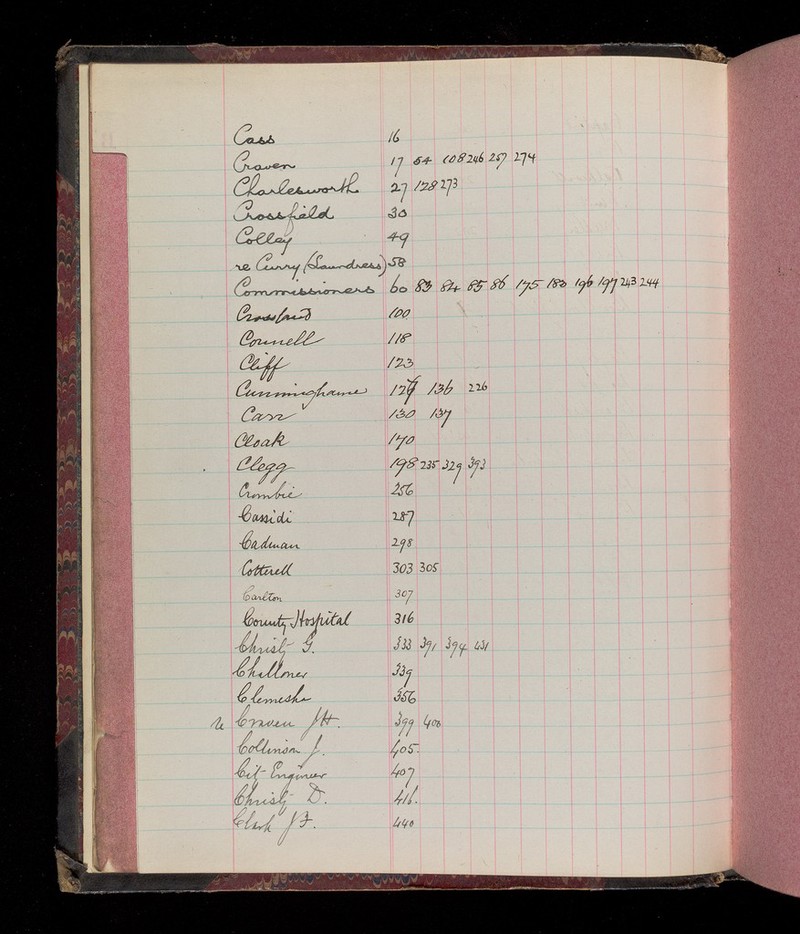 Cass 16
Craven 17 54 108 246 257 274
Charlesworth 27 128 273
Crossfield 30
Colley 49
re Curry (Laundress) 58
Commissioners 60 83 84 85 86 175 180 196 197 243 244
100
Connell 118
Cliff 123
Cunninghame 129 136 226
Carr 130 137
Cloak 170
Clegg 198 235 329 393
Crombie 256
Cassidi 287
Cadman 298
Cotterell 303 305
Carlton 307
County Hospital 316
Christy G. 333 391 394 431
Challoner 339
Clemesha 356
re Craven J H. 399 400
Collinson J. 405.
City Engineer 407
Christy D. 416.
Clark J F. 440